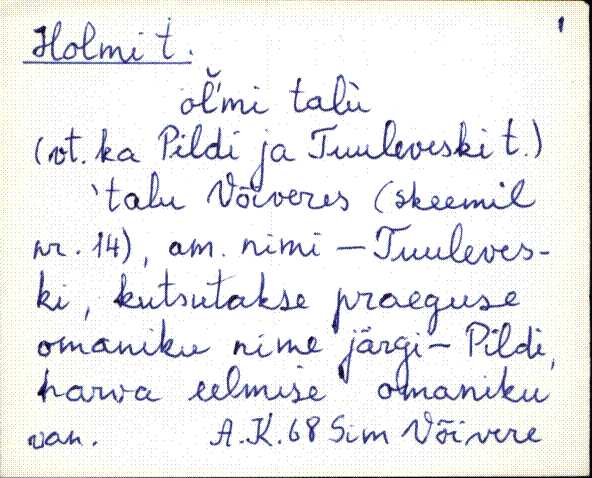 1
Holmi t.
ol̆'mi talù
(vt. ka Pildi ja Tuuleveski t.)
'talu Võiveres (skeemil
nr. 14), am. nimi — Tuuleves-
ki, kutsutakse praeguse
omaniku nime järgi — Pildi,
harva eelmise omaniku
van. A.K. 68 Sim Võivere